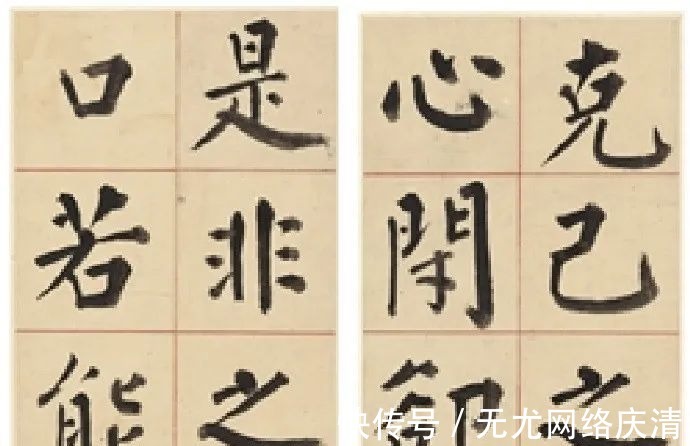 克己之
心閑
是非之
口若能
快传号 / 无尤网络庆清